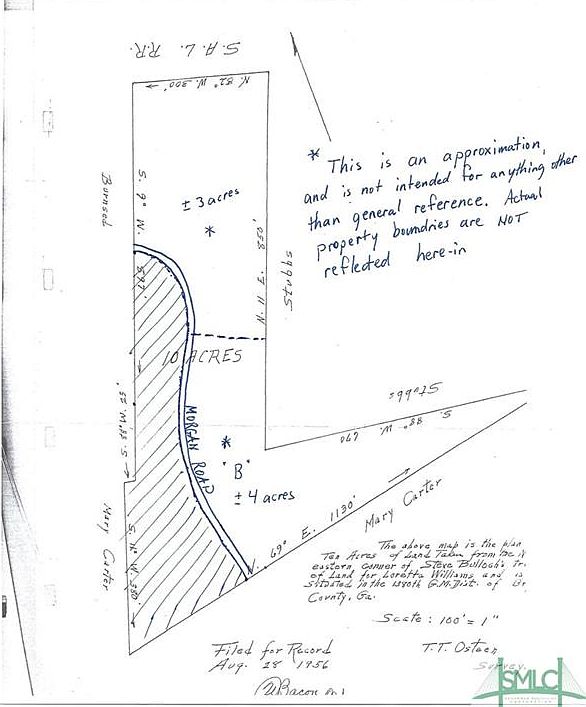 S.A.L. R.R.
N. 82° W. 300'
Burnsed
S. 9° W.
597'
± 3 acres
*
N. 11 E. 850'
Stubbs
* This is an approximation,
and is not intended for anything other
than general reference. Actual
property boundries are NOT
reflected here-in
10 ACRES
MORGAN ROAD
*
'B'
± 4 acres
Stubbs
S. 88° W. 690
Mary Carter
N. 69° E. 1130'
Mary Carter
The above map is the plan
Ten Acres of Land Taken from the N
eastern conner of Steve Bulloch's Tr.
of Land for Loretta Williams and is
Situated in the G.M. Dist. of
County, Ga.
Scale: 100' = 1"
T.T. Osteen
Survey.
Filed for Record
Aug. 28 1956
Bacon
SMLC